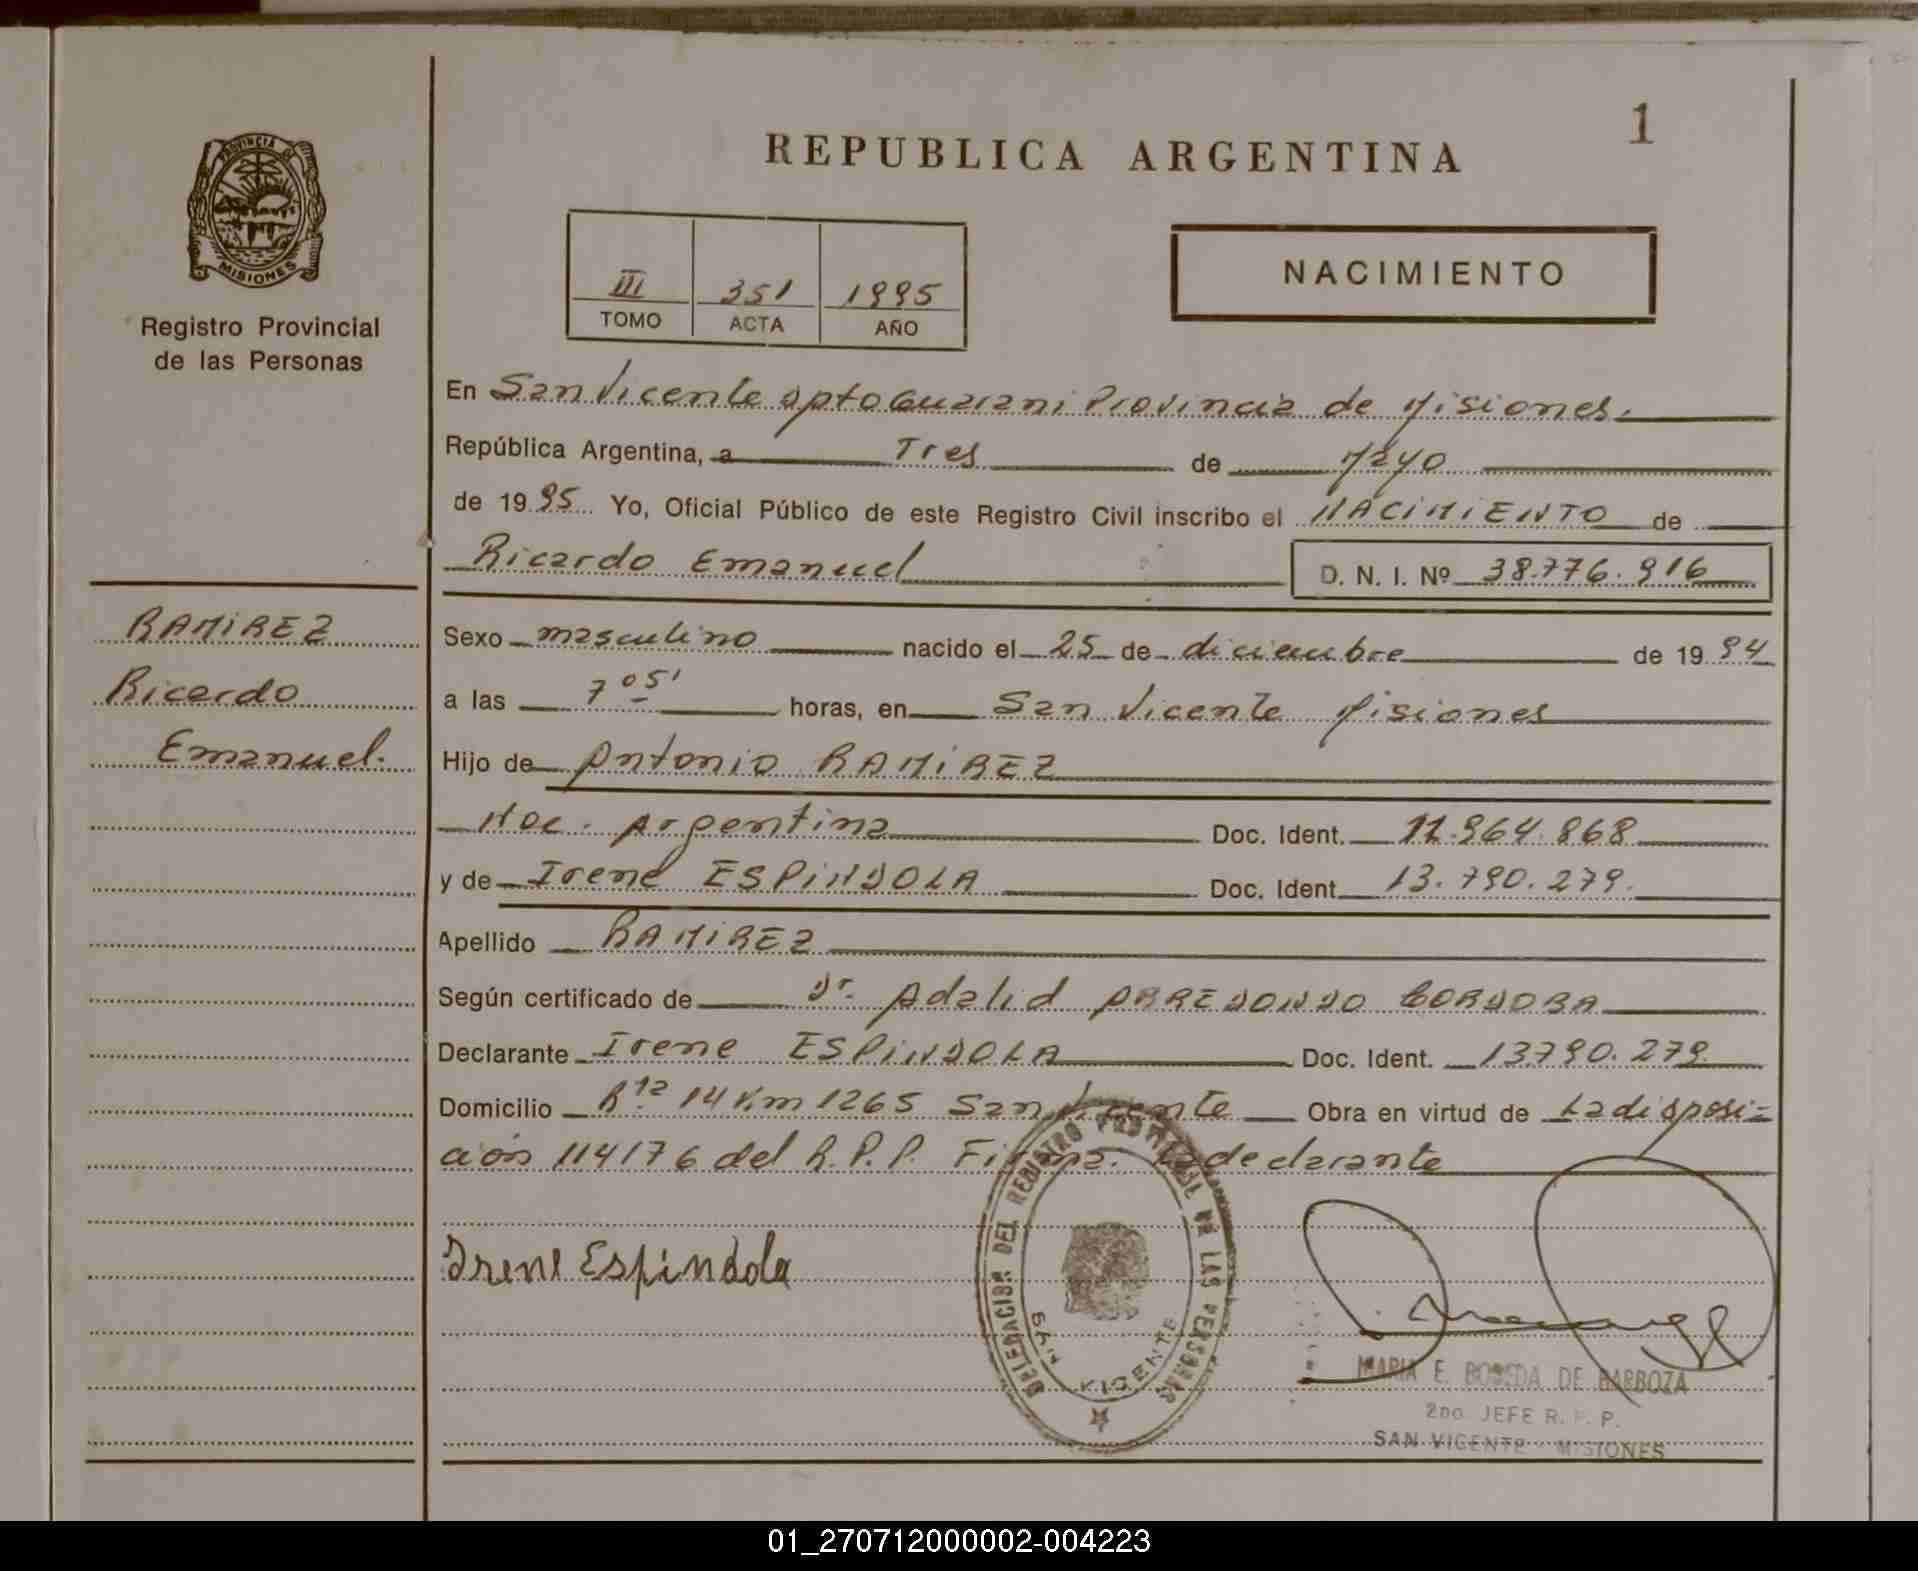 1
REPUBLICA ARGENTINA
PROVINCIA DE
MISIONES
Registro Provincial
de las Personas
NACIMIENTO
III 351 1995
TOMO ACTA AÑO
En San Vicente Dpto Guarani Provincia de Misiones.
República Argentina, a Tres de Mayo
de 1995 Yo, Oficial Público de este Registro Civil inscribo el NACIMIENTO de
Ricardo Emanuel D. N. I. Nº 38.776.916
RAMIREZ
Ricardo
Emanuel.
Sexo masculino nacido el 25 de diciembre de 1994
a las 7 05' horas, en San Vicente Misiones
Hijo de Antonio RAMIREZ
Nac. Argentina Doc. Ident. 11.964.868
y de Irene ESPINDOLA Doc. Ident. 13.790.279.
Apellido RAMIREZ
Según certificado de Dr. Adalid ARREDONDO CORDOBA
Declarante Irene ESPINDOLA Doc. Ident. 13790.279
Domicilio Rta 14 Km 1265 San Vicente Obra en virtud de La disposi-
ción 114176 del R.P.P. Firma. La declarante
Irene Espindola
DELEGACION DEL REGISTRO PROVINCIAL DE LAS PERSONAS
SAN VICENTE
MARIA E. DE BARBOZA
2DO JEFE R. P. P.
SAN VICENTE - MISIONES
01_270712000002-004223